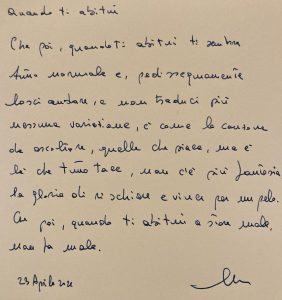 Quando ti abitui
Che poi, quando ti abitui ti sembra
tutto normale e, pedissequamente
lasci andare, e non traduci più
nessuna variazione, è come la canzone
da ascoltare, quella che piace, ma è
lì che tutto tace, non c'è più fantasia
la gloria di rischiare e vincer per un pelo.
Che poi, quando ti abitui a star male,
non fa male.
23 Aprile